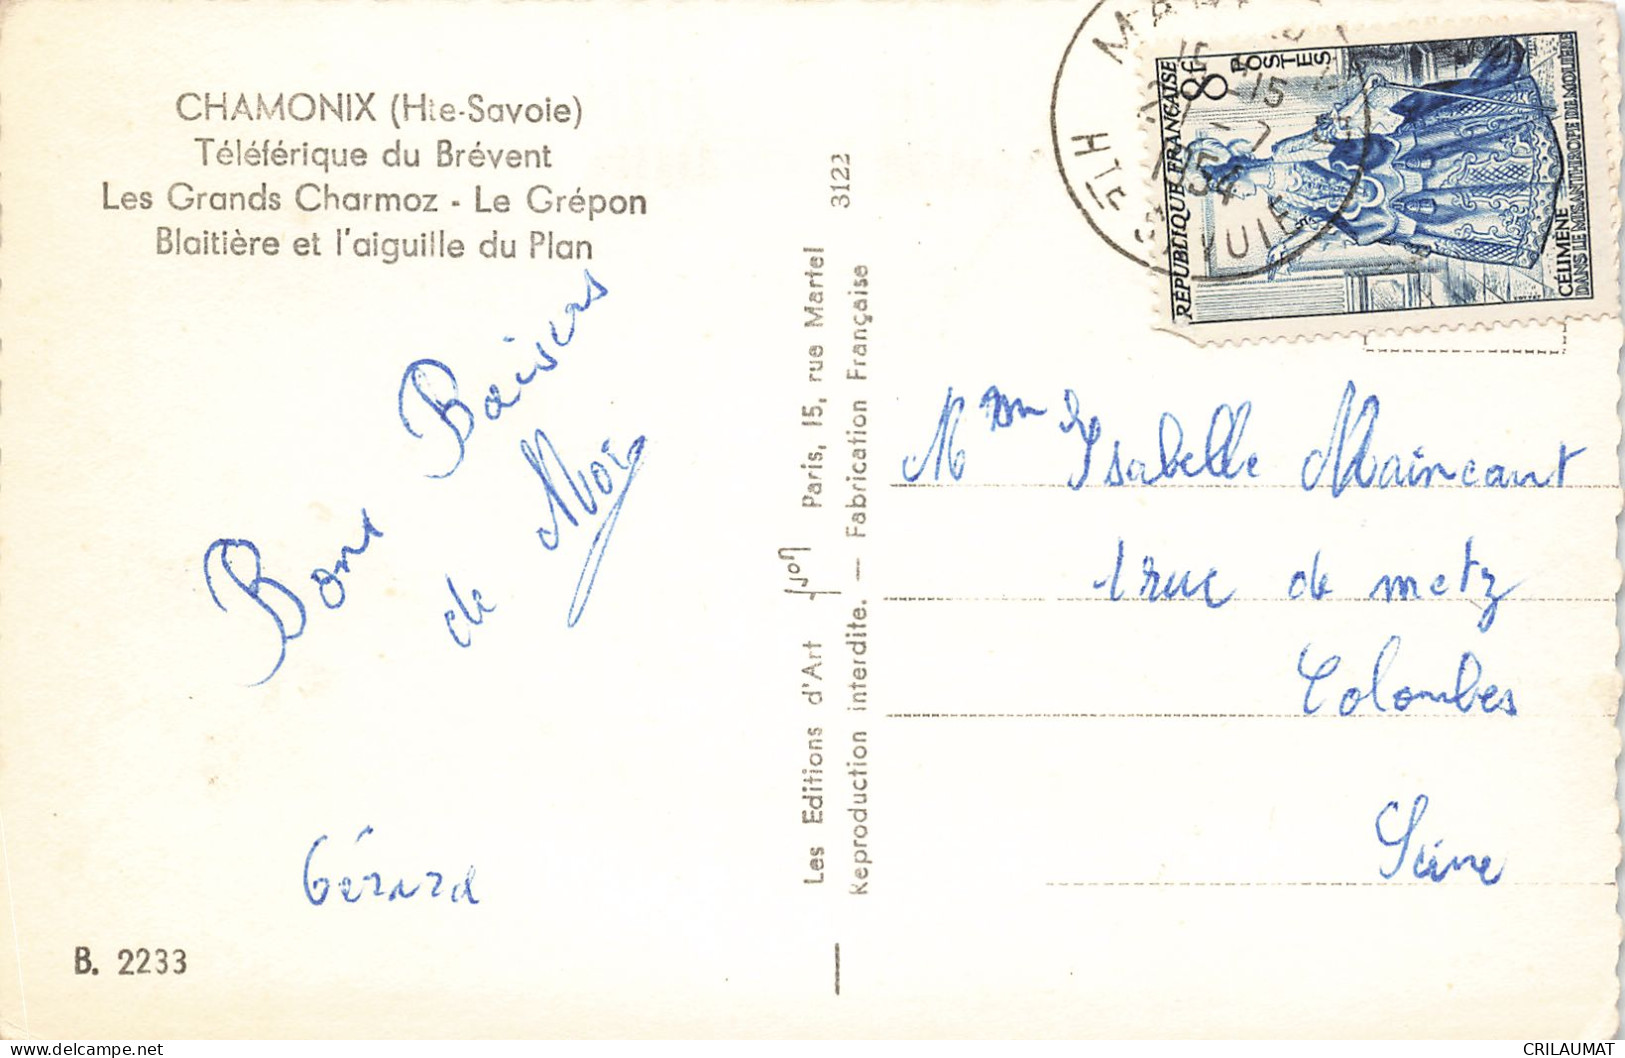 CHAMONIX (Hte-Savoie)
Téléférique du Brévent
Les Grands Charmoz - Le Grépon
Blaitière et l'aiguille du Plan
Bons Baisers
de Moi
Gérard
B. 2233
Les Editions d'Art Yvon Paris, 15, rue Martel 3122
Reproduction interdite. — Fabrication Française
RÉPUBLIQUE FRANÇAISE
8F
POSTES
CÉLIMÈNE
DANS LE MISANTHROPE DE MOLIÈRE
HTE
15
-7
1954
SAVOIE
Mme Isabelle Maincant
1 rue de metz
Colombes
Seine
CRILAUMAT